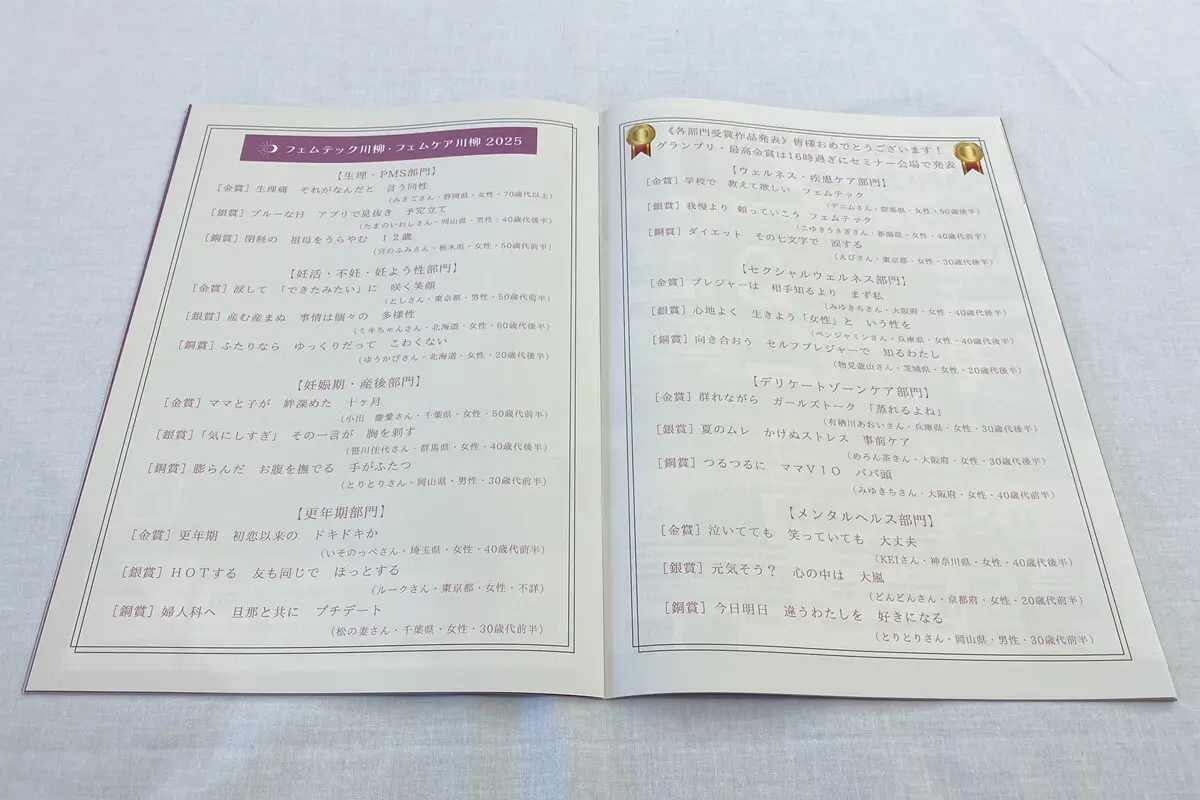 フェムテック川柳・フェムケア川柳 2025
【生理・PMS部門】
［金賞］生理痛　それがなんだと　言う同性
（みさごさん・静岡県・女性・70歳代以上）
［銀賞］ブルーな日　アプリで見抜き　予定立て
（たまのいわしさん・岡山県・男性・40歳代後半）
［銅賞］閉経の　祖母をうらやむ　１２歳
（宮のふみさん・栃木県・女性・50歳代前半）
【妊活・不妊・妊よう性部門】
［金賞］涙して　「できたみたい」に　咲く笑顔
（としさん・東京都・男性・50歳代前半）
［銀賞］産む産まぬ　事情は個々の　多様性
（ミキちゃんさん・北海道・女性・60歳代後半）
［銅賞］ふたりなら　ゆっくりだって　こわくない
（ゆうかびさん・北海道・女性・20歳代後半）
【妊娠期・産後部門】
［金賞］ママと子が　絆深めた　十ヶ月
（小出　慶愛さん・千葉県・女性・50歳代前半）
［銀賞］「気にしすぎ」　その一言が　胸を刺す
（笹川佳代さん・群馬県・女性・40歳代後半）
［銅賞］膨らんだ　お腹を撫でる　手がふたつ
（とりとりさん・岡山県・男性・30歳代前半）
【更年期部門】
［金賞］更年期　初恋以来の　ドキドキか
（いそのっぺさん・埼玉県・女性・40歳代前半）
［銀賞］ＨＯＴする　友も同じで　ほっとする
（ルークさん・東京都・女性・不詳）
［銅賞］婦人科へ　旦那と共に　プチデート
（松の妻さん・千葉県・女性・30歳代前半）
《各部門受賞作品発表》皆様おめでとうございます！
グランプリ・最高金賞は16時過ぎにセミナー会場で発表
【ウェルネス・疾患ケア部門】
［金賞］学校で　教えて欲しい　フェムテック
（デニムさん・群馬県・女性・50歳代後半）
［銀賞］我慢より　頼っていこう　フェムテック
（こゆきうさぎさん・新潟県・女性・40歳代前半）
［銅賞］ダイエット　その七文字で　涙する
（えびさん・東京都・女性・30歳代後半）
【セクシャルウェルネス部門】
［金賞］プレジャーは　相手知るより　まず私
（みゆきちさん・大阪府・女性・40歳代後半）
［銀賞］心地よく　生きよう「女性」と　いう性を
（ベンジャミンさん・兵庫県・女性・40歳代後半）
［銅賞］向き合おう　セルフプレジャーで　知るわたし
（物見遊山さん・茨城県・女性・20歳代後半）
【デリケートゾーンケア部門】
［金賞］群れながら　ガールズトーク　「蒸れるよね」
（有栖川あおいさん・兵庫県・女性・30歳代後半）
［銀賞］夏のムレ　かけぬストレス　事前ケア
（めろん茶さん・大阪府・女性・30歳代後半）
［銅賞］つるつるに　ママＶＩＯ　パパ頭
（みゆきちさん・大阪府・女性・40歳代前半）
【メンタルヘルス部門】
［金賞］泣いてても　笑っていても　大丈夫
（KEIさん・神奈川県・女性・40歳代後半）
［銀賞］元気そう？　心の中は　大嵐
（どんどんさん・京都府・女性・20歳代前半）
［銅賞］今日明日　違うわたしを　好きになる
（とりとりさん・岡山県・男性・30歳代前半）